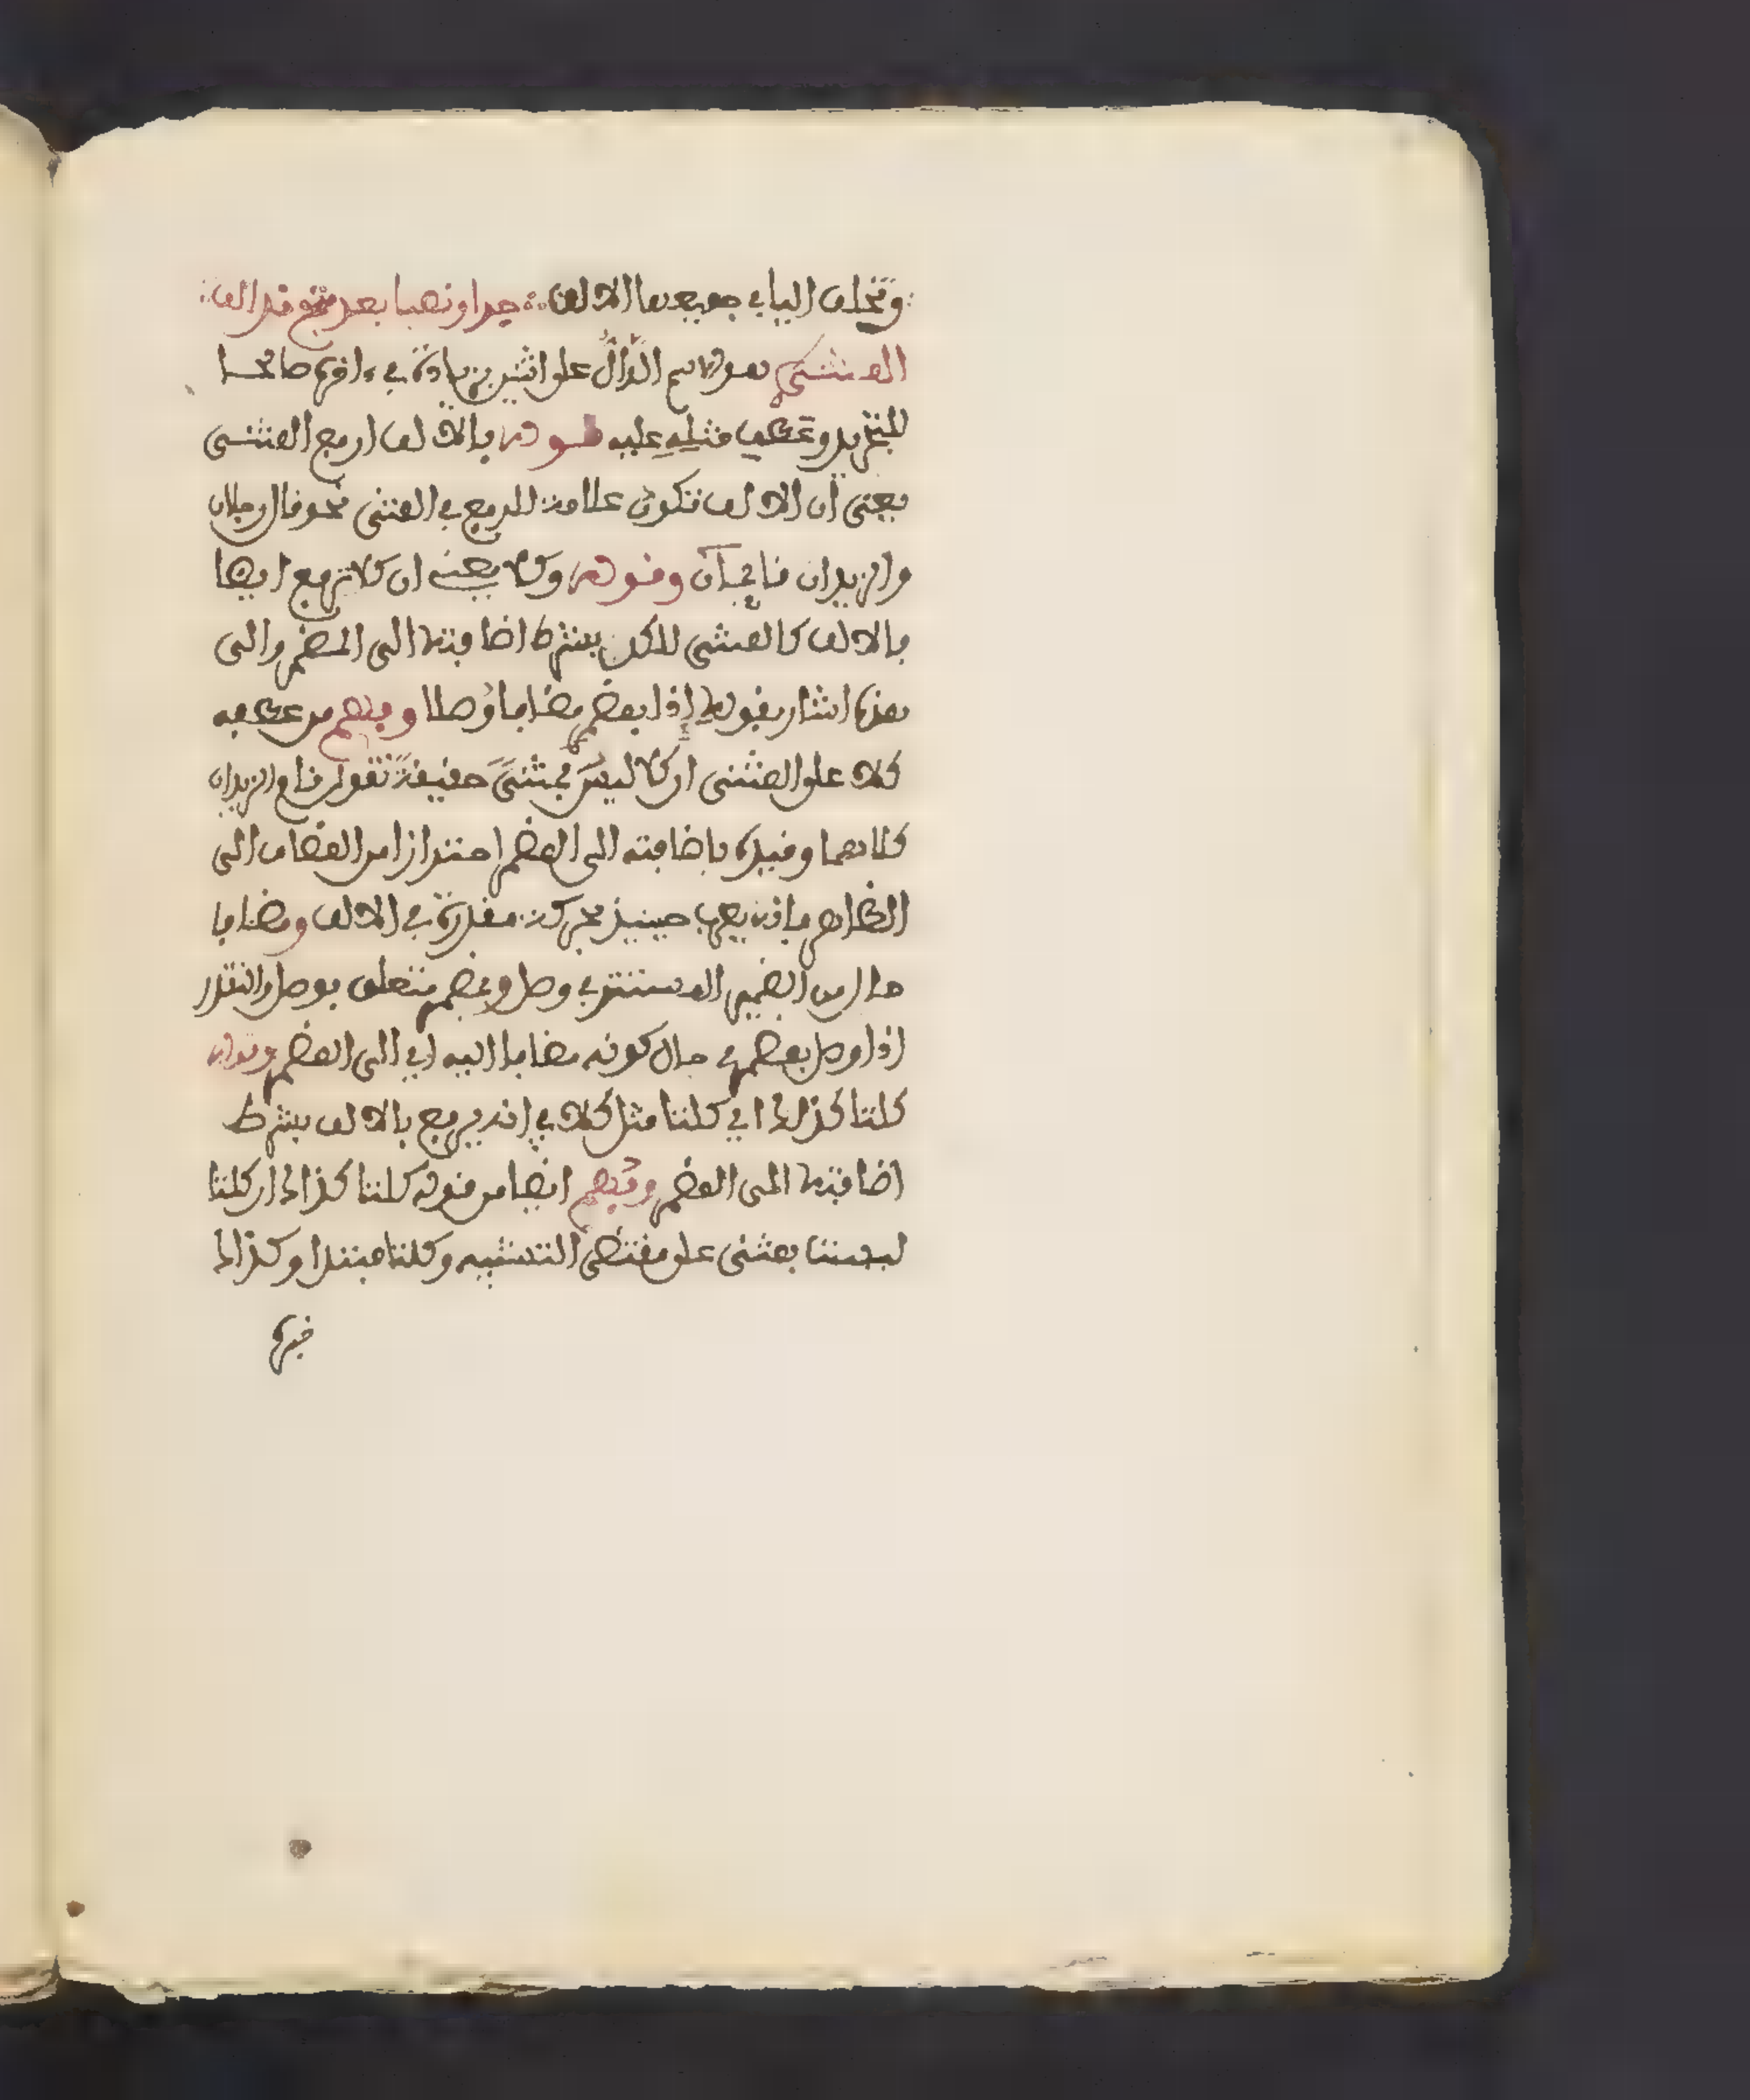 وتخلف اليا في جميعها الالف جرا ونصبا بعد فتح قد الف
المثنى هو الاسم الدال على اثنين بزيادة في ءاخره صالحا
للتجريد وعطف مثله عليه قوله بالالف ارفع المثنى
يعني أن الالف تكون علامة للرفع في المثنى نحو قال رجلان
والزيدان قائمان وقوله وكلا يعني ان كلا ترفع ايضا
بالالف كالمثنى لاكن بشرط اضافته الى المضمر والى
هذا اشار بقوله إذا بمضمر مضافا وُصلا وفهم من عطفه
كلا على المثنى ان كلا ليسَ بمثنىً حقيقةً تقول قام الزيدان
كلاهما وقيده باضافته الى المضمر احترازا من المضاف الى
الظاهر فانه يعرب حينيذ بحركة مقدرة في الالف ومضافا
حال من الضمير المستتر في وصل وبمضمر متعلق بوصل والتقدير
اذا وصل بمضمر في حال كونه مضافا اليه اي الى المضمر وقوله
كلتا كذاك اي كلتا مثل كلا في انه يرفع بالالف بشرط
اضافته الى المضمر وفهم ايضا من قوله كلتا كذاك ان كلتا
ليست بمثنى على مقتضى التشبيه وكلتا مبتدا وكذاك
خبره